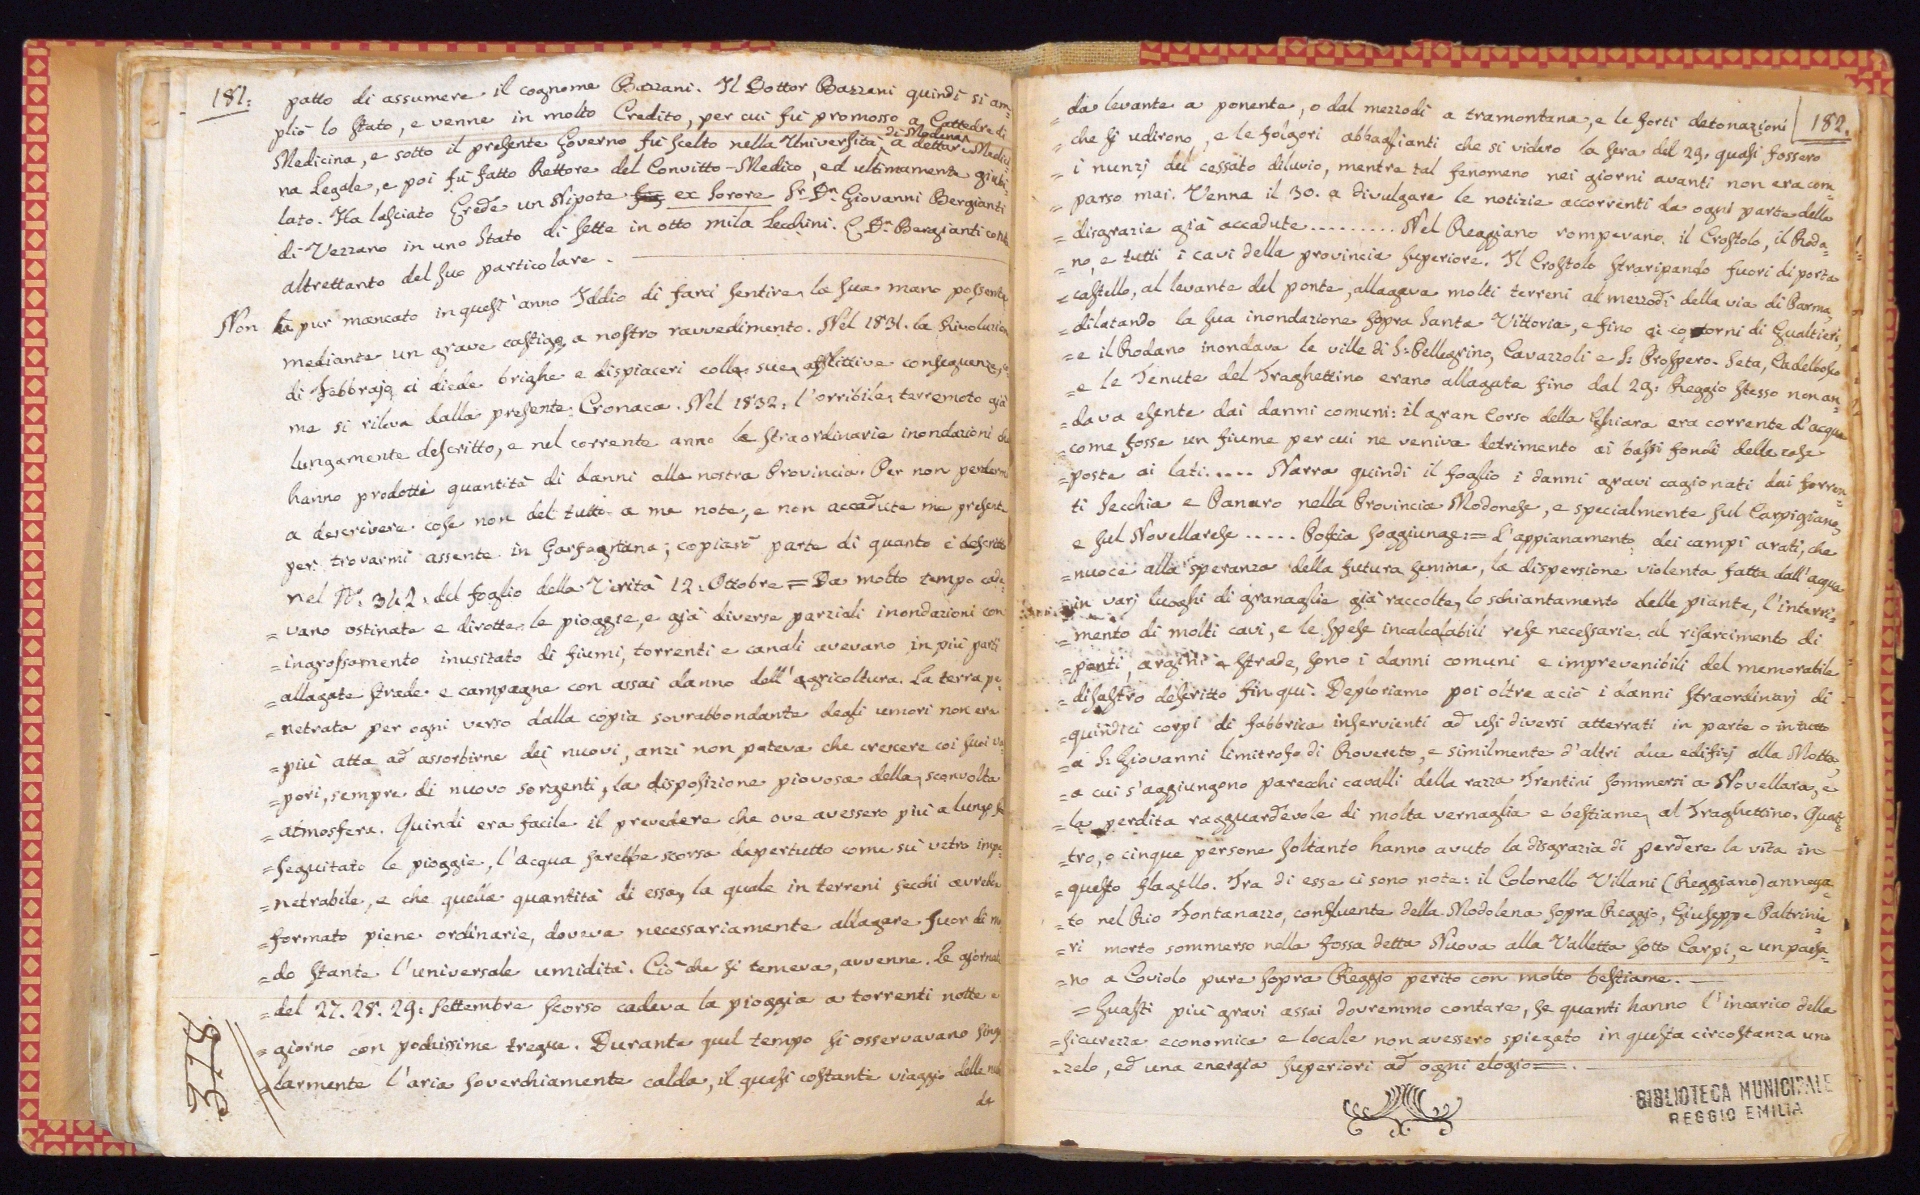 181:
patto di assumere il cognome Bazzani. Il Dottor Bazzani quindi si am-
pliò lo stato, e venne in molto Credito, per cui fù promosso a Cattedre di
Medicina, e sotto il presente Governo fù scelto nella Università di Modena, a dettar Medici-
na Legale, e poi fù fatto Rettore del Convitto-Medico, ed ultimamente giubi-
lato. Ha lasciato Erede un Nipote ex sorore Sr. Dn. Giovanni Bergianti
di Vezzano in uno stato di sette in otto mila Zecchini. E Dn. Bergianti conta
altrettanto del suo particolare.
Non ha pur mancato in quest'anno Iddio di farci sentire la sua mano possente
mediante un grave castigo, a nostro ravvedimento. Nel 1831. la Rivoluzion
di Febbrajo ci diede brighe e dispiaceri colle sue afflittive conseguenze, co-
me si rileva dalla presente Cronaca. Nel 1832: l'orribile terremoto già
lungamente descritto, e nel corrente anno le straordinarie inondazioni che
hanno prodotte quantità di danni alla nostra Provincia. Per non perdermi
a descrivere cose non del tutto a me note, e non accadute me presente
per trovarmi assente in Garfagnana; copiarò parte di quanto è descritto
nel No. 342. del foglio della Verità 12: Ottobre = Da molto tempo cade-
= vano ostinate e dirotte le pioggie, e già diverse parziali inondazioni con
= ingrossamento inusitato di fiumi, torrenti e canali avevano in più parti
= allagate strade e campagne con assai danno dell'agricoltura. La terra pe-
= netrata per ogni verso dalla copia sovrabbondante degli umori non era
= più atta ad assorbirne dei nuovi, anzi non poteva che crescere coi suoi va-
= pori, sempre di nuovo sorgenti, la disposizione piovosa della sconvolta
= atmosfera. Quindi era facile il prevedere che ove avessero più a lungo
= seguitato le pioggie, l'acqua sarebbe scorsa dapertutto come sù vetro impe-
= netrabile, e che quella quantità di essa, la quale in terreni secchi avrebbe
= formato piene ordinarie, doveva necessariamente allagare fuor di mo-
= do stante l'universale umidità. Ciò che si temeva, avvenne. Le giornate
= del 27. 28. 29: Settembre scorso cadeva la pioggia a torrenti notte e
= giorno con pochissime tregue. Durante quel tempo si osservavano singo-
= larmente l'aria soverchiamente calda, il quasi costante viaggio delle nubi
da
318
182.
= da levante a ponente, o dal mezzodì a tramontana, e le forti detonazioni
= che si udirono, e le folgori abbaglianti che si videro la sera del 29. quasi fossero
= i nunzj del cessato diluvio, mentre tal fenomeno nei giorni avanti non era com-
= parso mai. Venne il 30. a divulgare le notizie accorrenti da ogni parte delle
= disgrazie già accadute......... Nel Reggiano rompevano il Crostolo, il Roda-
= no, e tutti i cavi della provincia superiore. Il Crostolo straripando fuori di porta
= castello, al levante del ponte, allagava molti terreni al mezzodì della via di Parma,
= dilatando la sua inondazione sopra Santa Vittoria, e fino ai contorni di Gualtieri,
= e il Rodano inondava le ville di S: Pellegrino, Cavazzoli e S: Prospero. Seta, Cadelbosco
= e le Tenute del Traghettino erano allagate fino dal 29: Reggio stesso non an-
= dava esente dai danni comuni: il gran Corso della Ghiara era corrente d'acqua
= come fosse un fiume per cui ne veniva detrimento ai bassi fondi delle case
= poste ai lati..... Narra quindi il foglio i danni gravi cagionati dai torren-
ti Secchia e Panaro nella Provincia Modonese, e specialmente sul Carpigiano,
e sul Novellarese..... Poscia soggiunge: = L'appianamento dei campi arati, che
= nuoce alla speranza della futura semina, la dispersione violenta fatta dall'acqua
= in varj luoghi di granaglie già raccolte, lo schiantamento delle piante, l'interri-
= mento di molti cavi, e le spese incalcalabili rese necessarie al risarcimento di
= ponti, argini e strade, sono i danni comuni e imprevenibili del memorabile
= disastro descritto fin quì. Deploriamo poi oltre a ciò i danni straordinarj di
= quindici corpi di fabbrica inservienti ad usi diversi atterrati in parte o in tutto
= a S: Giovanni limitrofo di Rovereto, e similmente d'altri due edifizj alla Motta,
= a cui s'aggiungono parecchi cavalli della razza Trentini sommersi a Novellara, e
= la perdita ragguardevole di molta vernaglia e bestiame al Traghettino. Quat-
= tro, o cinque persone soltanto hanno avuto la disgrazia di perdere la vita in
= questo flagello. Tra di esse ci sono note: il Colonello Villani (Reggiano) annega-
= to nel Rio Fontanazzo, confluente della Modolena sopra Reggio, Giuseppe Paltrinie-
= ri morto sommerso nella fossa detta Nuova alla Valletta sotto Carpi, e un paesa-
= no a Coviolo pure sopra Reggio perito con molto bestiame.
= Guasti più gravi assai dovremmo contare, se quanti hanno l'incarico della
= sicurezza economica e locale non avessero spiegato in questa circostanza uno
= zelo, ed una energia superiori ad ogni elogio =.
BIBLIOTECA MUNICIPALE
REGGIO EMILIA